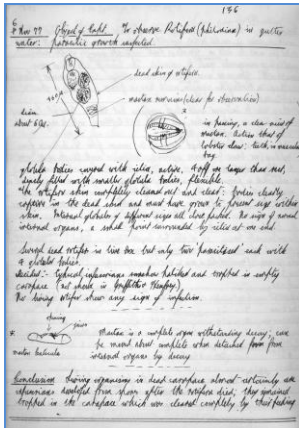 136
6
8 Nov 77 Object of Expt To observe Rotifers (philodina) in gutter
water: parasitic growth suspected.
dead skin of rotifer.
mastax moving (clear for observation)
about 6
in passing, a clear view of
mastax. Action that of
lobster claw: teeth in muscular
bag.
globular bodies with cilia, active, 4 off no larger than rest,
filled with smaller globular bodies, flexible.
The rotifer skin completely cleaned out and clear. Bodies clearly
in the dead skin and must have grown to present size within
skin. Internal globules of different sizes all close packed. No sign of normal
internal organs, a small point surrounded by cilia at one end.
Several dead rotifer in live box but only two 'parasitized' each with
4 globular bodies.
Decided: typical infusorians somehow hatched and trapped in empty
carapace (as shown in Griffith & Henfrey)
No living rotifer show any sign of infection.
opening
Mastax is a complete organ withstanding decay; can
be moved about complete when detached from
internal organs by decay
Conclusion Living organisms in dead carapace almost certainly are
infusorians developed from spores after the rotifer died; they remained
trapped in the carapace which was cleared completely by their feeding